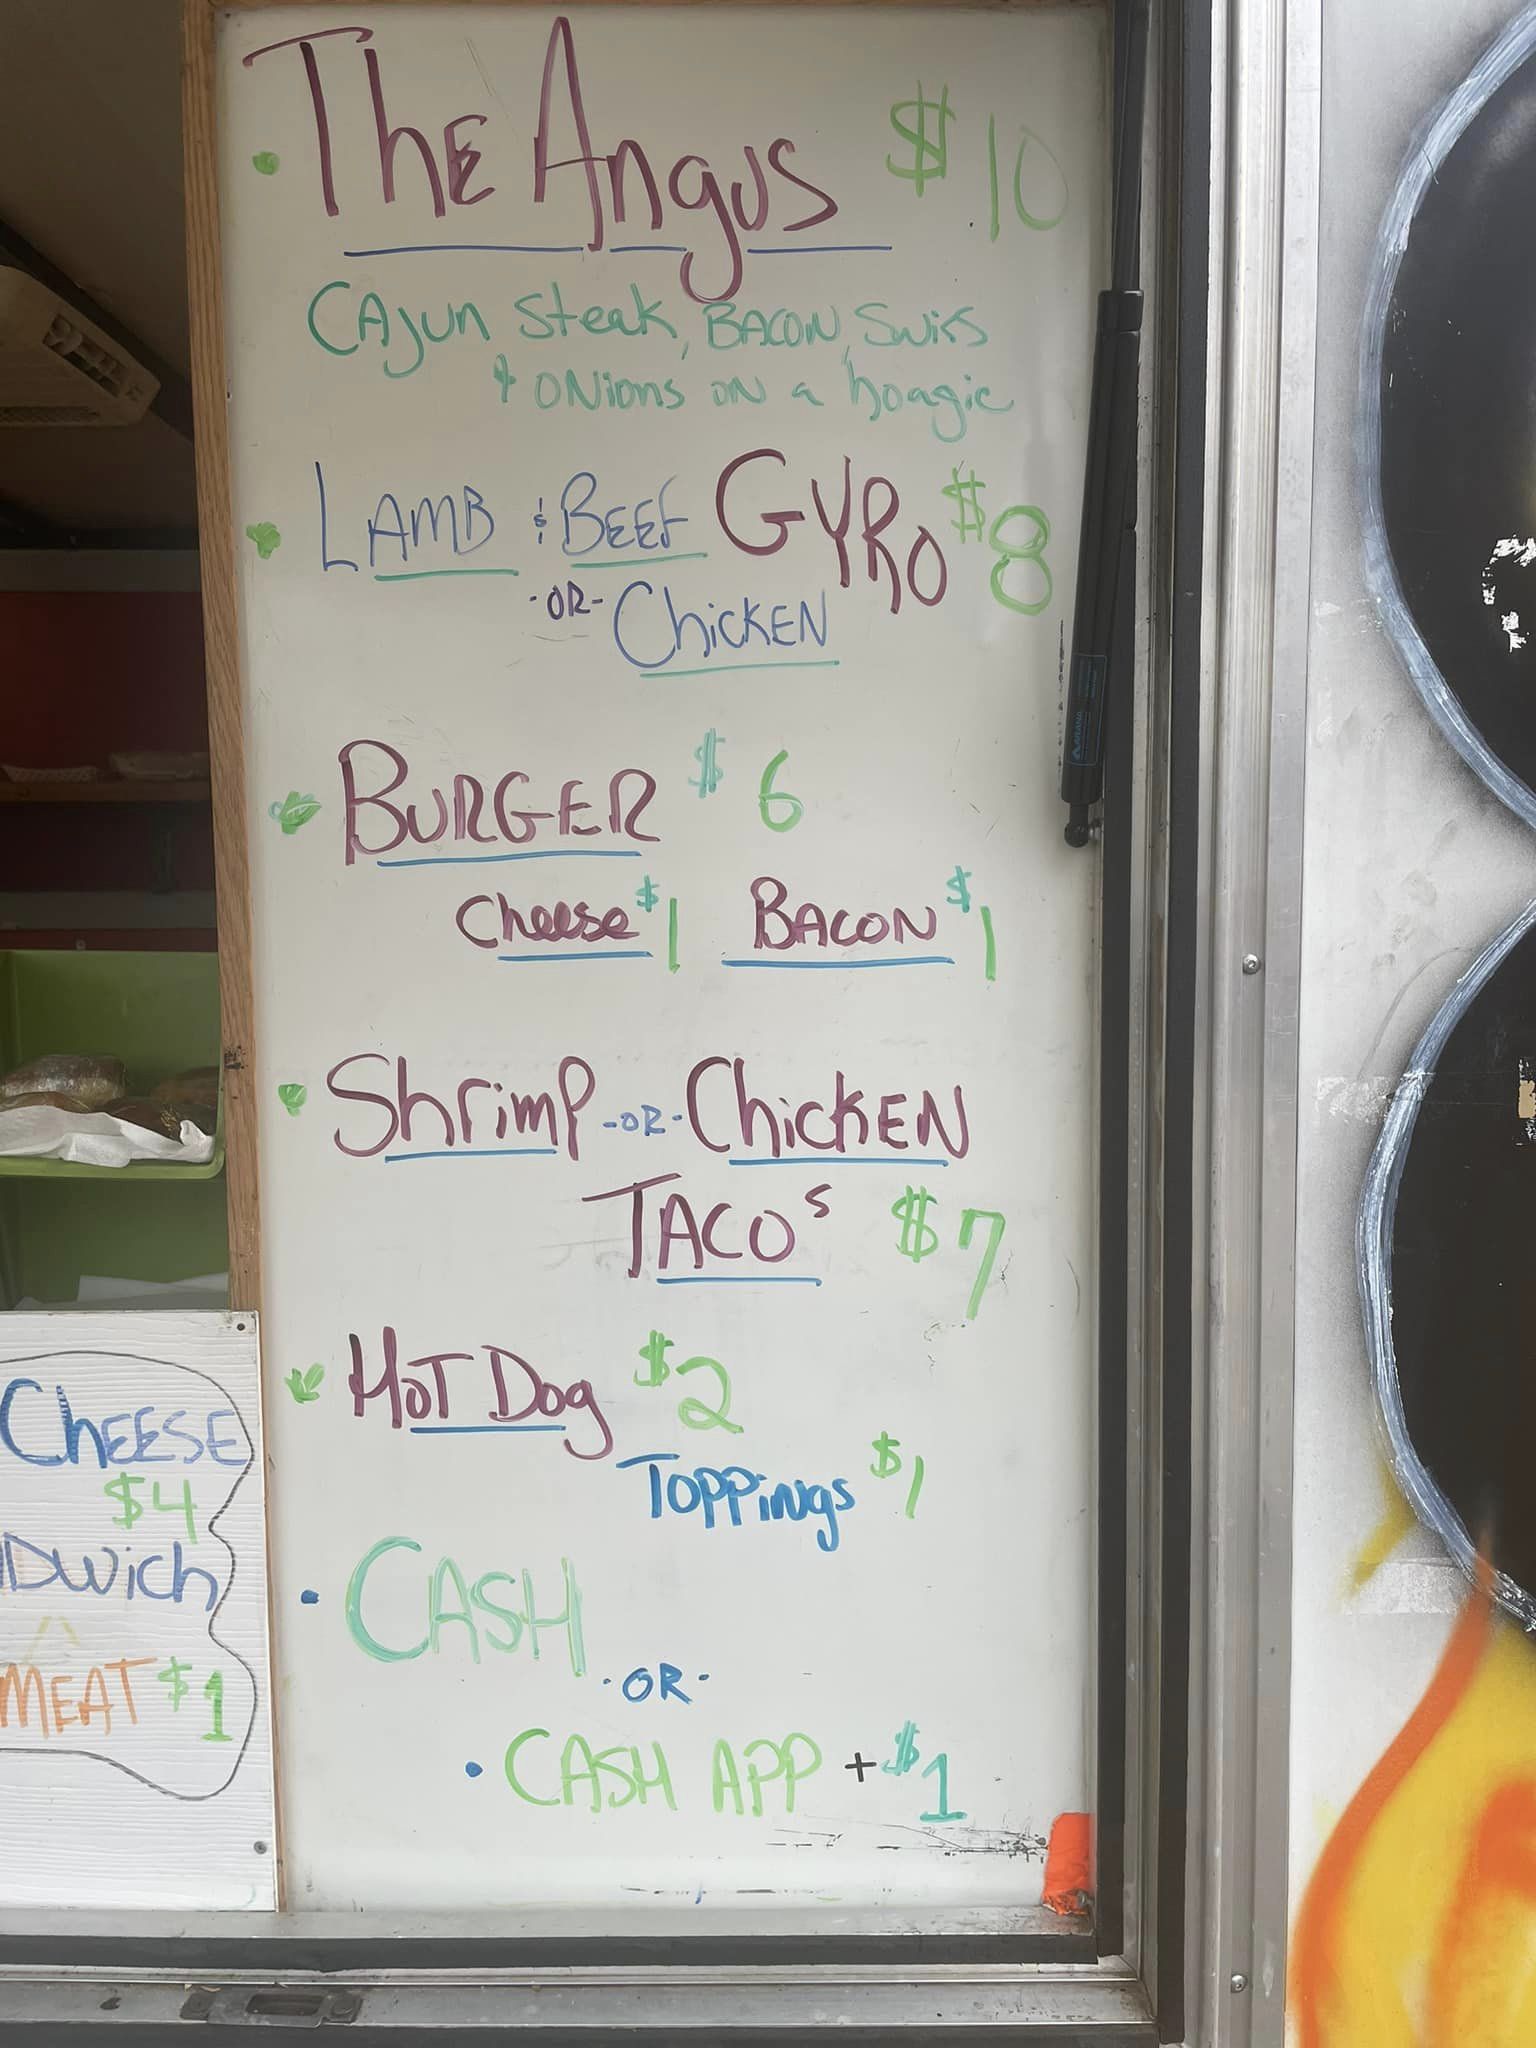 The Angus $10
Cajun Steak, Bacon, Swiss
& Onions on a hoagie
Lamb & Beef Gyro $8
-or- Chicken
Burger $6
Cheese $1 Bacon $1
Shrimp -or- Chicken
Taco's $7
Hot Dog $2
Toppings $1
Cash
·or·
Cash App + $1
Cheese
$4
dwich
Meat $1